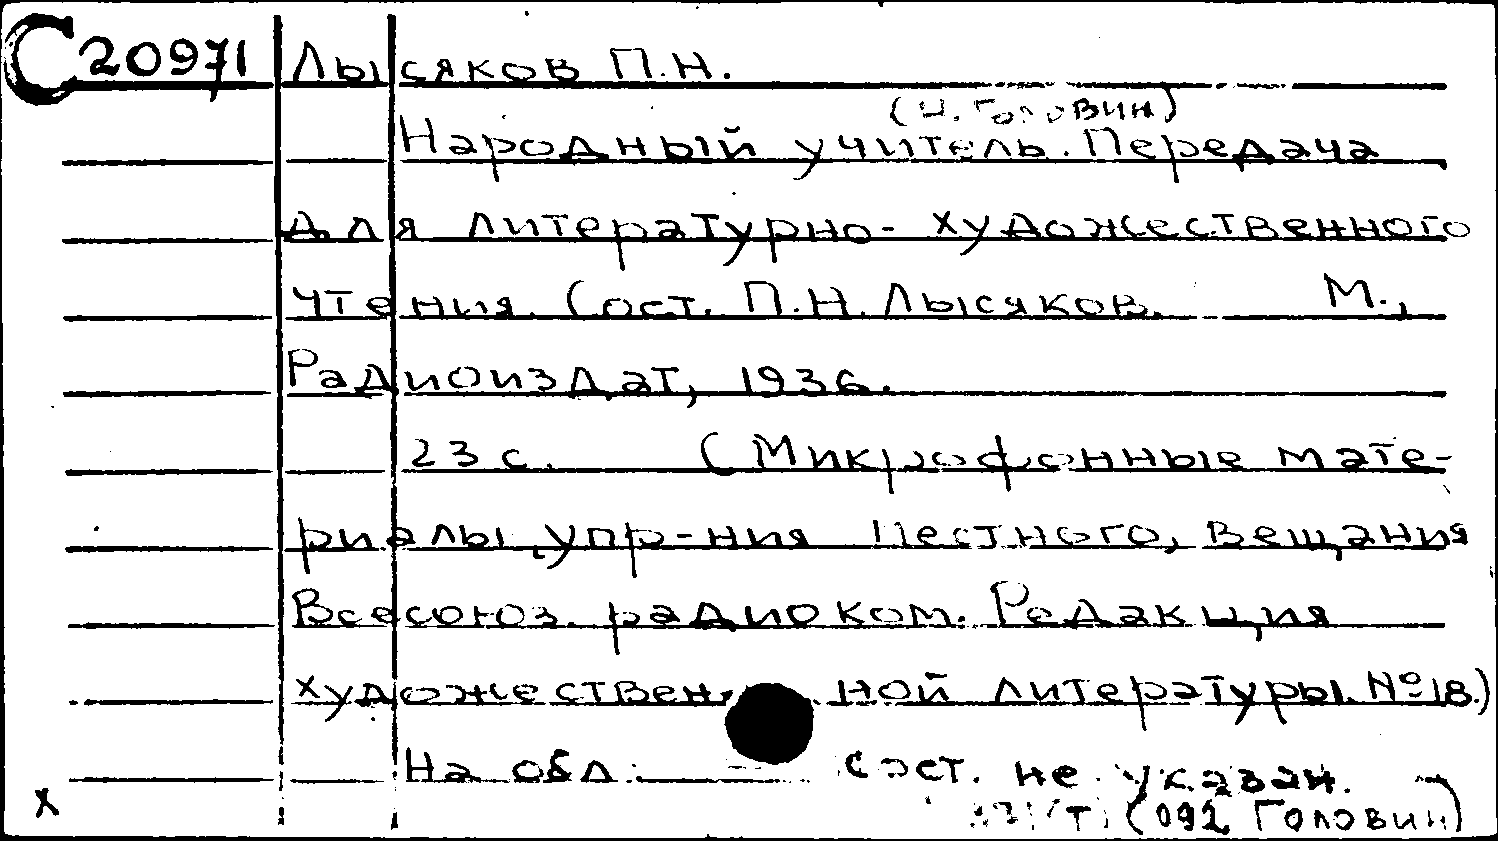 С20971 Лысяков П.Н.
(И. Головин)
Народный учитель. Передача
для литературно-художественного
чтения. Сост. П.Н. Лысяков. М.,
Радиоиздат, 1936.
23 с. (Микрофонные мате-
риалы, упр-ния местного, вещания
Всесоюз. радиоком. Редакция
художествен- ной литературы. №18.)
На обл.: сост. не указан.
(Т) (092 Головин)
х